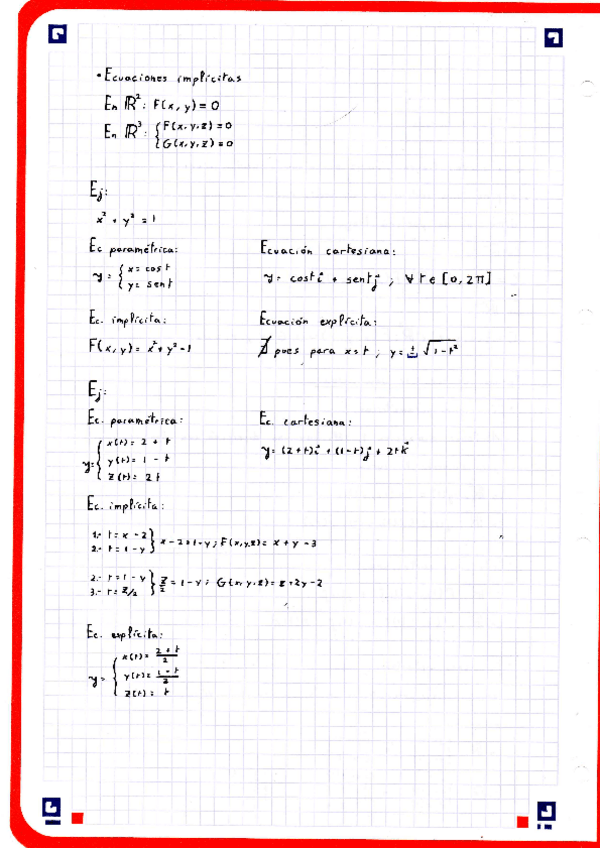 • Ecuaciones implícitas
En ℝ²: F(x, y) = 0
En ℝ³: { F(x, y, z) = 0
G(x, y, z) = 0
Ej:
x² + y² = 1
Ec paramétrica:
γ = { x = cos t
y = sen t
Ecuación cartesiana:
γ = cost i⃗ + sent j⃗ ; ∀ t ∈ [0, 2π]
Ec. implícita:
F(x, y) = x² + y² - 1
Ecuación explícita:
∄ pues para x = t ; y = ± √(1 - t²)
Ej:
Ec. paramétrica:
γ = { x(t) = 2 + t
y(t) = 1 - t
z(t) = 2t
Ec. cartesiana:
γ = (2+t)i⃗ + (1-t)j⃗ + 2t k⃗
Ec. implícita:
1.- t = x - 2
2.- t = 1 - y } x - 2 = 1 - y ; F(x, y, z) = x + y - 3
2.- t = 1 - y
3.- t = z/2 } z/2 = 1 - y ; G(x, y, z) = z + 2y - 2
Ec. explícita:
γ = { x(t) = (2 + t)/2
y(t) = (1 - t)/2
z(t) = t